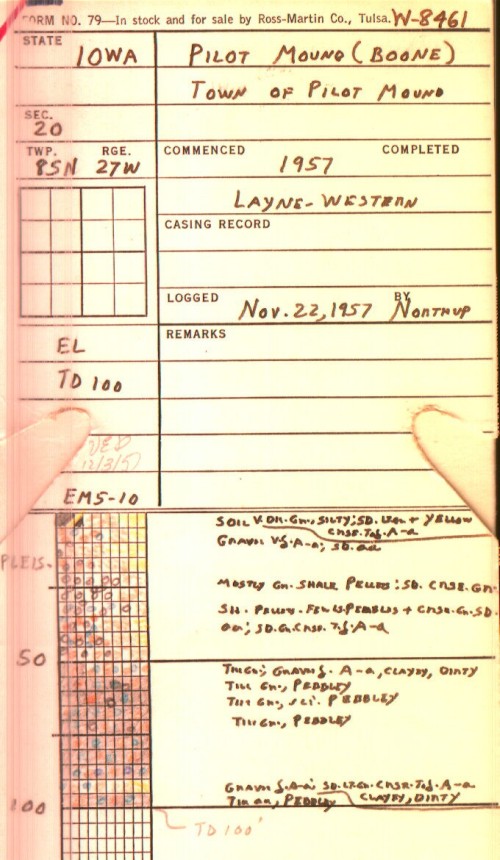 FORM NO. 79—In stock and for sale by Ross-Martin Co., Tulsa. W-8461
STATE
IOWA
PILOT MOUND (BOONE)
TOWN OF PILOT MOUND
SEC.
20
TWP. RGE.
85N 27W
COMMENCED COMPLETED
1957
LAYNE-WESTERN
CASING RECORD
LOGGED BY
Nov. 22, 1957 NORTHUP
EL
REMARKS
TD 100
EMS-10
SOIL V. DK. GN., SILTY; SD. + YELLOW
CRSE. TO f. A-a
GRAVEL V.f. A-a; SD. aa
PLEIS.
MOSTLY GN. SHALE PELLETS; SD. CRSE. GN.
SH. PELLETS. FEW LS PEBBLES + CRSE. GN. SD.
aa; SD. G. CRSE. TO f. A-a
50
TILL GN.; GRAVEL f. A-a, CLAYEY, DIRTY
TILL GN., PEBBLEY
TILL GN., SLI. PEBBLEY
TILL GN., PEBBLEY
GRAVEL f. A-a; SD. LT. GN. CRSE. TO f. A-a
100
TILL aa, PEBBLEY CLAYEY, DIRTY
TD 100'